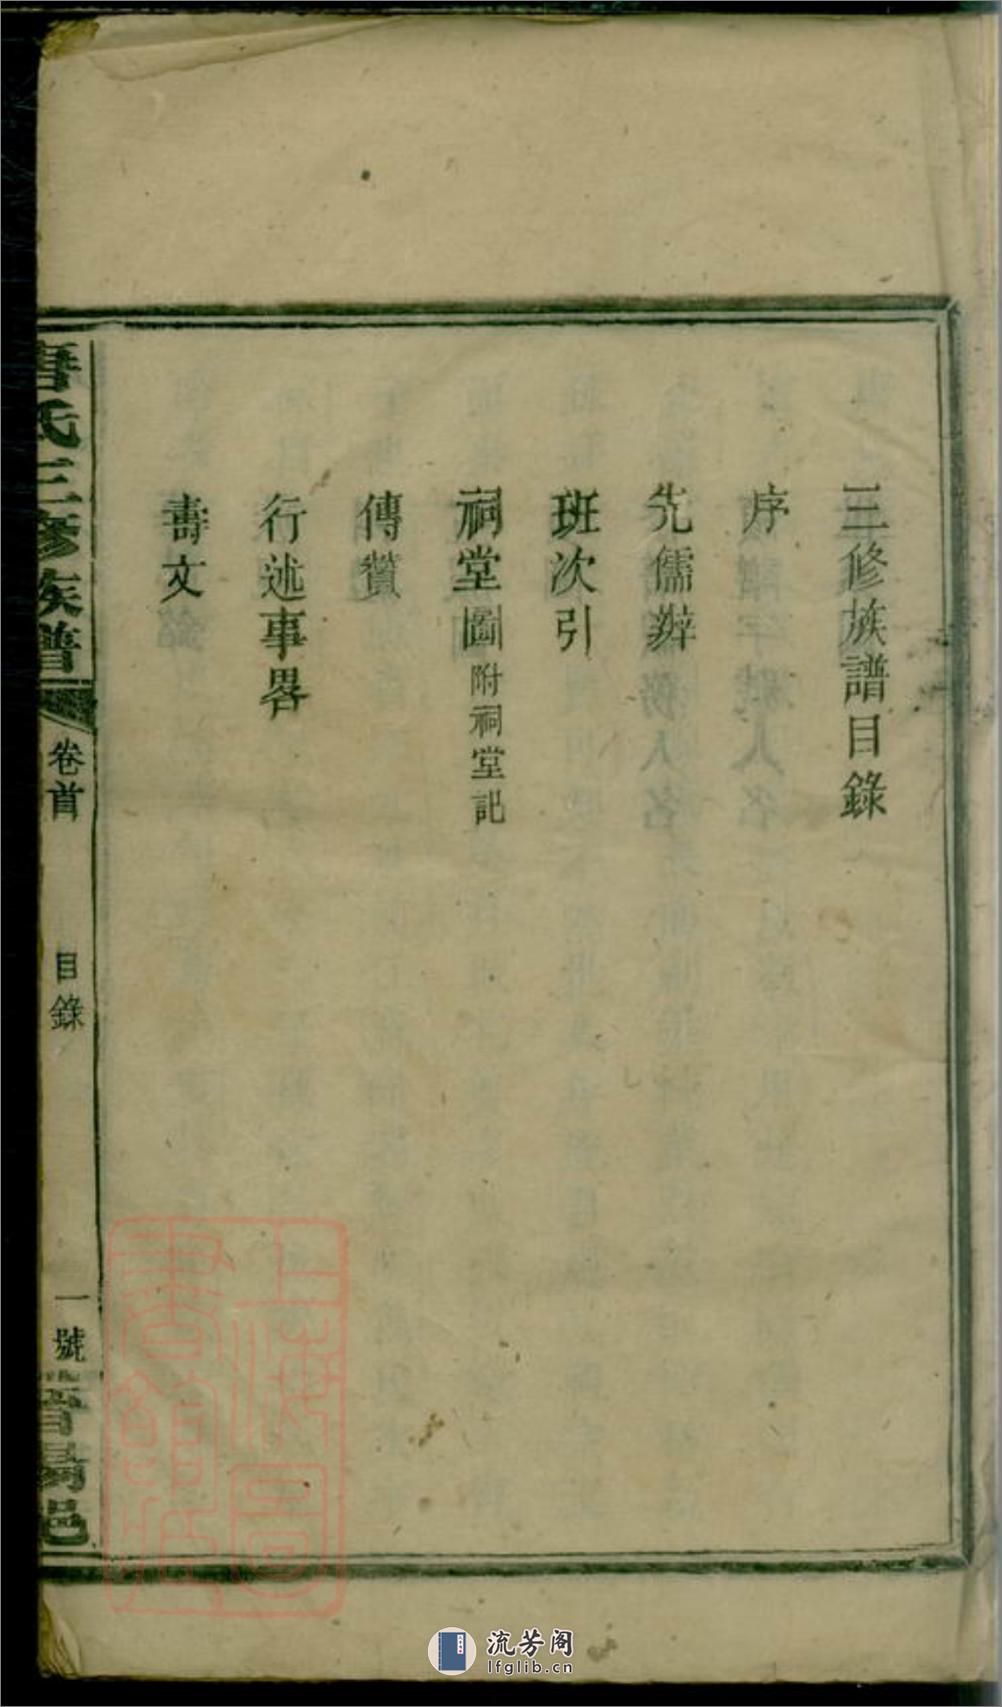 三修族譜目錄
序
先儒辯
班次引
祠堂圖附祠堂記
傳贊
行述事畧
壽文
唐氏三修族譜
卷首
目錄
一號
晉昜邑
上海圖書館藏
流芳阁
lfglib.cn